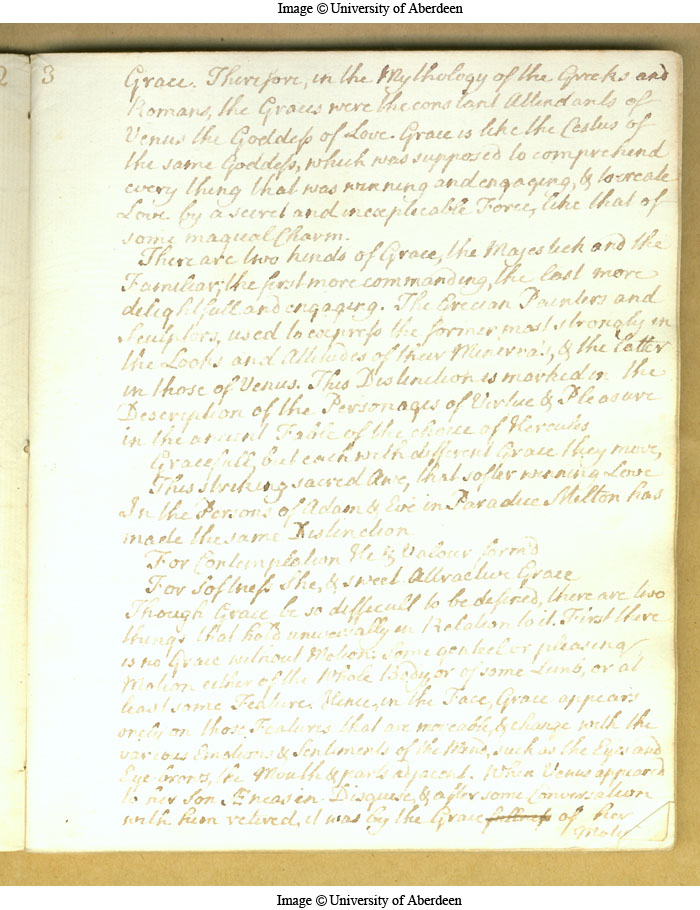 Image © University of Aberdeen
2
3
Grace. Therefore, in the Mythology of the Greeks and
Romans, the Graces were the constant Attendants of
Venus the Goddess of Love. Grace is like the Cestus of
the same Goddess, which was supposed to comprehend
every thing that was winning and engaging, & to create
Love by a secret and inexplicable Force, like that of
some magical Charm.
There are two kinds of Grace, the Majestick and the
Familiar; the first more commanding, the last more
delightfull and engaging. The Grecian Painters and
Sculptors, used to express the former most strongly in
the Looks and Attitudes of their Minerva's, & the latter
in those of Venus. This Distinction is marked in the
Description of the Personages of Virtue & Pleasure
in the ancient Fable of the choice of Hercules
Gracefull, but each with different Grace they move,
This striking sacred Awe, that softer winning Love
In the Persons of Adam & Eve in Paradice Milton has
made the same Distinction
For Contemplation He & Valour form'd
For Softness She, & sweet Attractive Grace
Though Grace be so difficult to be defined, there are two
things that hold universally in Relation to it. First there
is no Grace without Motion: some genteel or pleasing
Motion either of the Whole Body, or of some Limb, or at
least some Feature. Hence, in the Face, Grace appears
only on those Features that are moveable, & change with the
various Emotions & Sentiments of the Mind, such as the Eyes and
Eye-brows, the Mouth & parts adjacent. When Venus appeared
to her Son Æneas in Disguise, & after some Conversation
with him retired, it was by the Grace of her
Moti
Image © University of Aberdeen